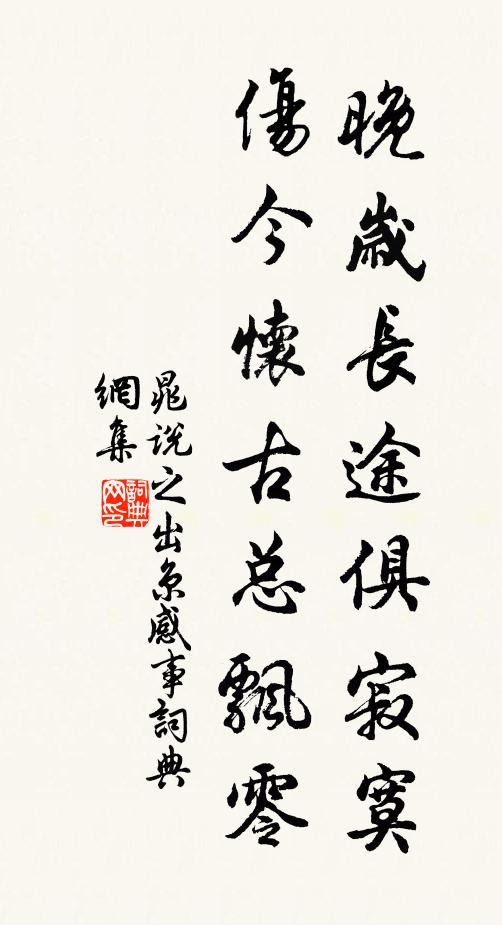 晚歲長途俱寂寞
傷今懷古总飄零
晁說之出京感事詞典
網集
詞典
网印